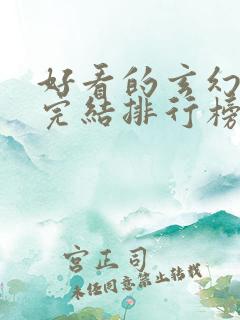 好看的玄幻
完结排行榜
宫正司
未经同意禁止转载